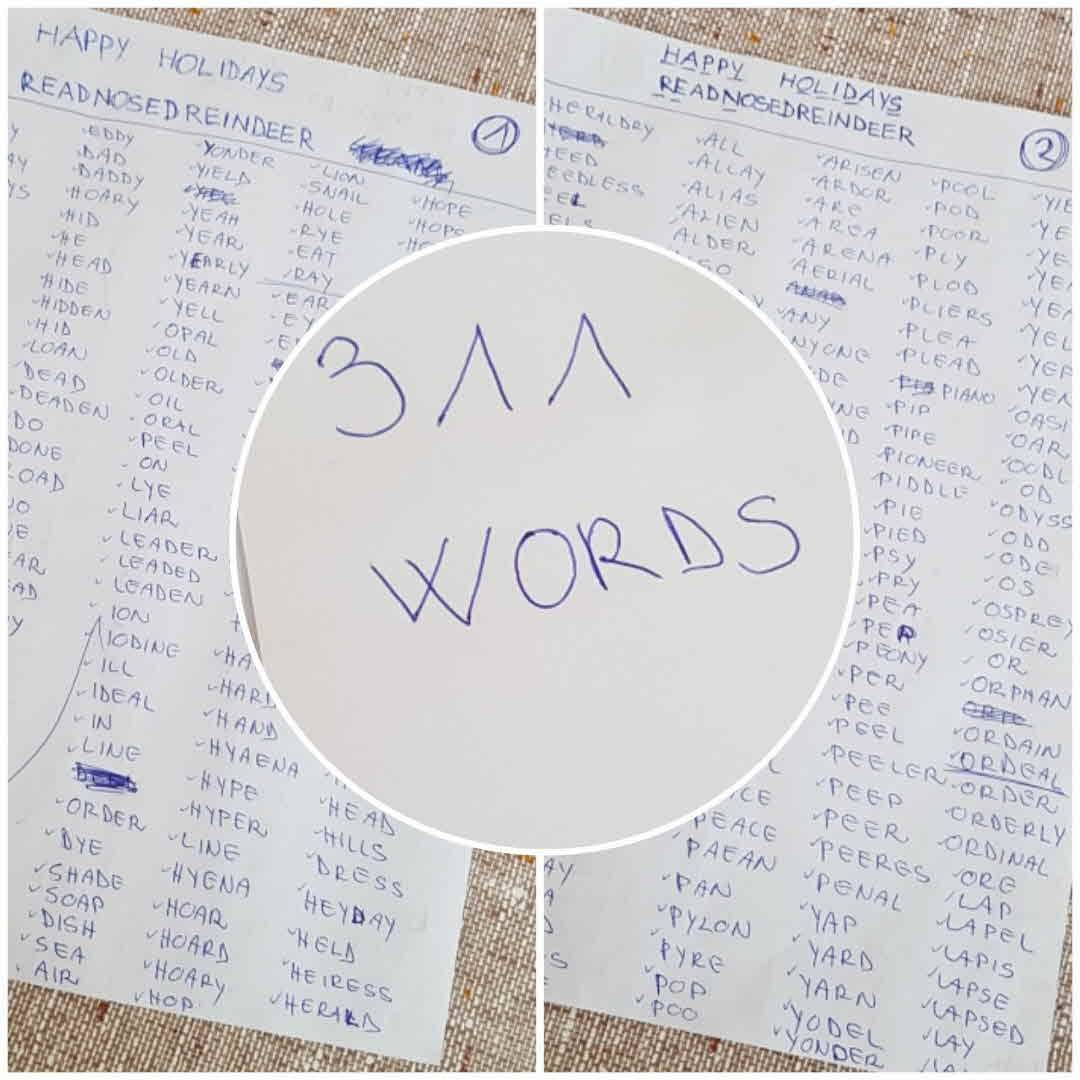 HAPPY HOLIDAYS
READNOSEDREINDEER
1
EDDY
DAD
DADDY
HOARY
HID
HE
HEAD
HIDE
HIDDEN
HID
LOAN
DEAD
DEADEN
DO
DONE
LOAD
ION
IODINE
ILL
IDEAL
IN
LINE
ORDER
DYE
SHADE
SOAP
DISH
SEA
AIR
YONDER
YIELD
YEAH
YEAR
YEARLY
YEARN
YELL
OPAL
OLD
OLDER
OIL
ORAL
PEEL
ON
LYE
LIAR
LEADER
LEADED
LEADEN
HARD
HAND
HYAENA
HYPE
HYPER
LINE
HYENA
HOAR
HOARD
HOARY
HOP
LION
SNAIL
HOLE
RYE
EAT
RAY
EAR
HEAD
HILLS
DRESS
HEYDAY
HELD
HEIRESS
HERALD
HOPE
HOPS
311
WORDS
HAPPY HOLIDAYS
READNOSEDREINDEER
2
HERALDRY
ALL
ALLAY
ALIAS
ALIEN
ALDER
PEACE
PAEAN
PAN
PYLON
PYRE
POP
POO
ARISEN
ARDOR
ARE
AREA
ARENA
AERIAL
ANY
PIP
PIPE
PIONEER
PIDDLE
PIE
PIED
PSY
PRY
PEA
PEP
PEONY
PER
PEE
PEEL
PEELER
PEEP
PEER
PEERES
PENAL
YAP
YARD
YARN
YODEL
YONDER
POOL
POD
POOR
PLY
PLOD
PLIERS
PLEA
PLEAD
PIANO
OAR
OD
ODD
ODE
OS
OSPREY
OSIER
OR
ORPHAN
ORDAIN
ORDEAL
ORDER
ORDERLY
ORDINAL
ORE
LAP
LAPEL
LAPIS
LAPSE
LAPSED
LAY